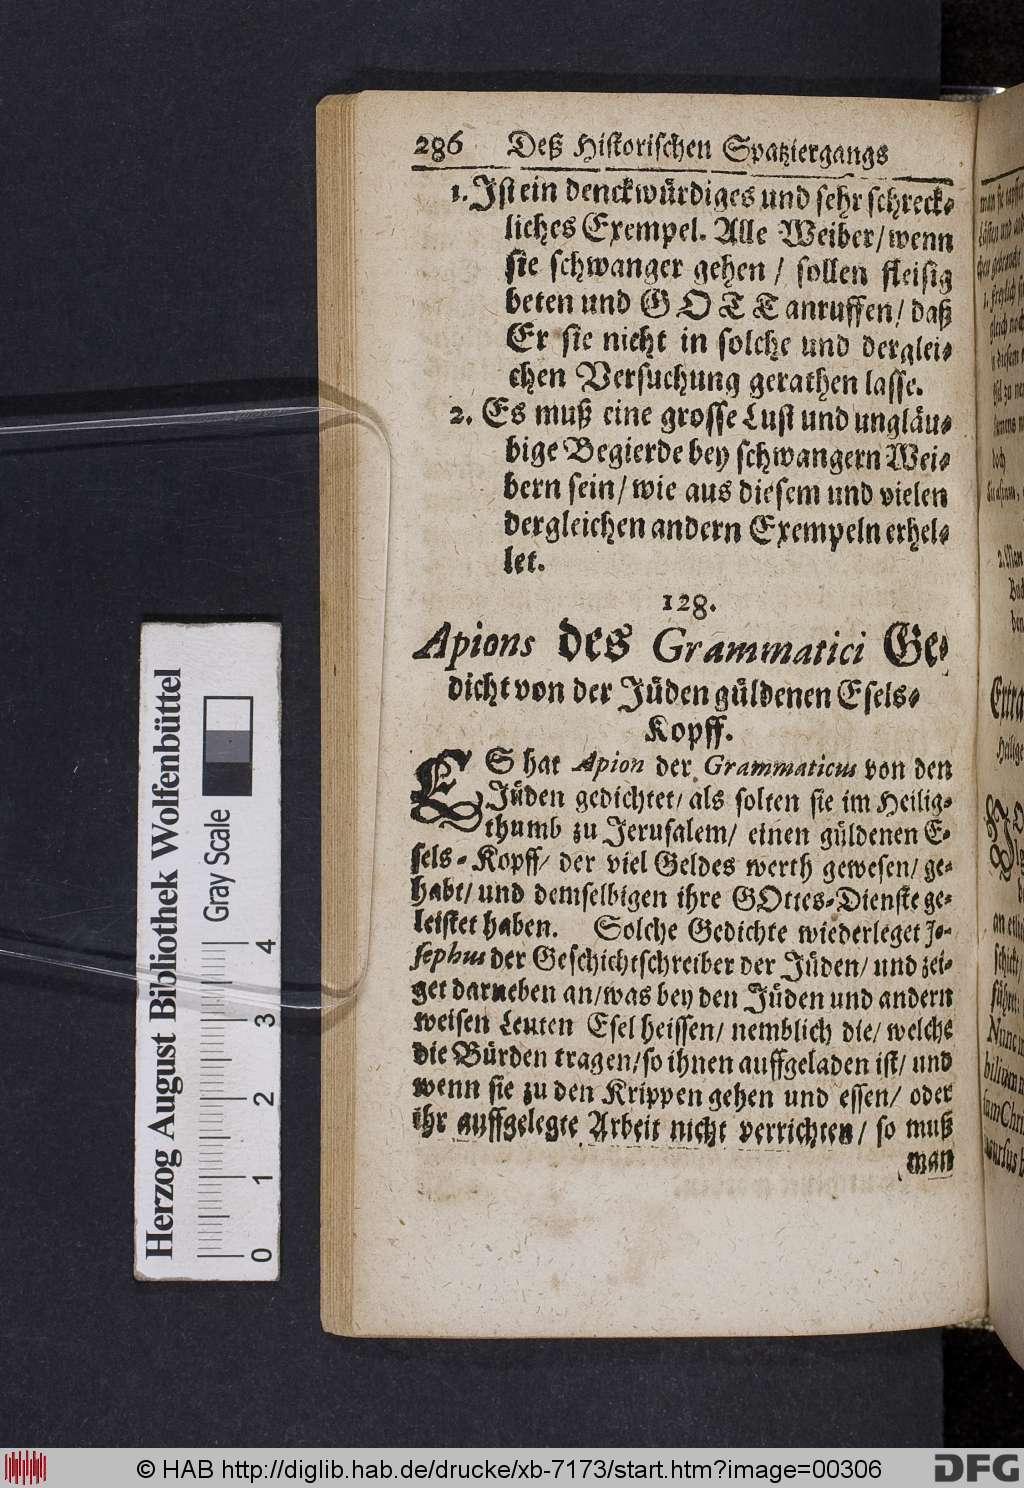 286 Deß Historischen Spatziergangs
1. Ist ein denckwürdiges und sehr schreck-
liches Exempel. Alle Weiber/ wenn
sie schwanger gehen / sollen fleisig
beten und GOTT anruffen/ daß
Er sie nicht in solche und derglei-
chen Versuchung gerathen lasse.
2. Es muß eine grosse Lust und ungläu-
bige Begierde bey schwangern Wei-
bern sein/ wie aus diesem und vielen
dergleichen andern Exempeln erhel-
let.
128.
Apions des Grammatici Ge-
dicht von der Jüden güldenen Esels-
Kopff.
ES hat Apion der Grammaticus von den
Jüden gedichtet/ als solten sie im Heilig-
thumb zu Jerusalem/ einen güldenen E-
sels-Kopff/ der viel Geldes werth gewesen/ ge-
habt/ und demselbigen ihre GOttes-Dienste ge-
leistet haben. Solche Gedichte wiederleget Jo-
sephus der Geschichtschreiber der Jüden/ und zei-
get darneben an/ was bey den Jüden und andern
weisen Leuten Esel heissen/ nemblich die/ welche
die Bürden tragen/ so ihnen auffgeladen ist/ und
wenn sie zu den Krippen gehen und essen/ oder
ihr auffgelegte Arbeit nicht verrichten/ so muß
man
Herzog August Bibliothek Wolfenbüttel
Gray Scale
0 1 2 3 4
© HAB http://diglib.hab.de/drucke/xb-7173/start.htm?image=00306
DFG